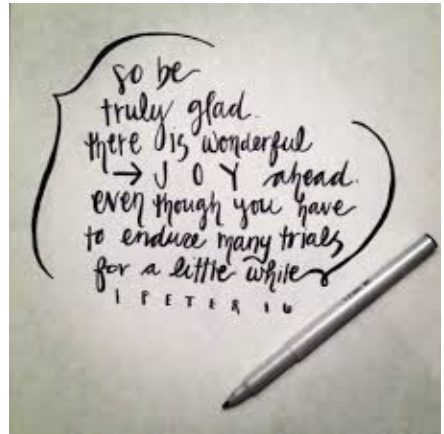 so be
truly glad.
there is wonderful
→ J O Y ahead.
even though you have
to endure many trials
for a little while
1 PETER 1 6